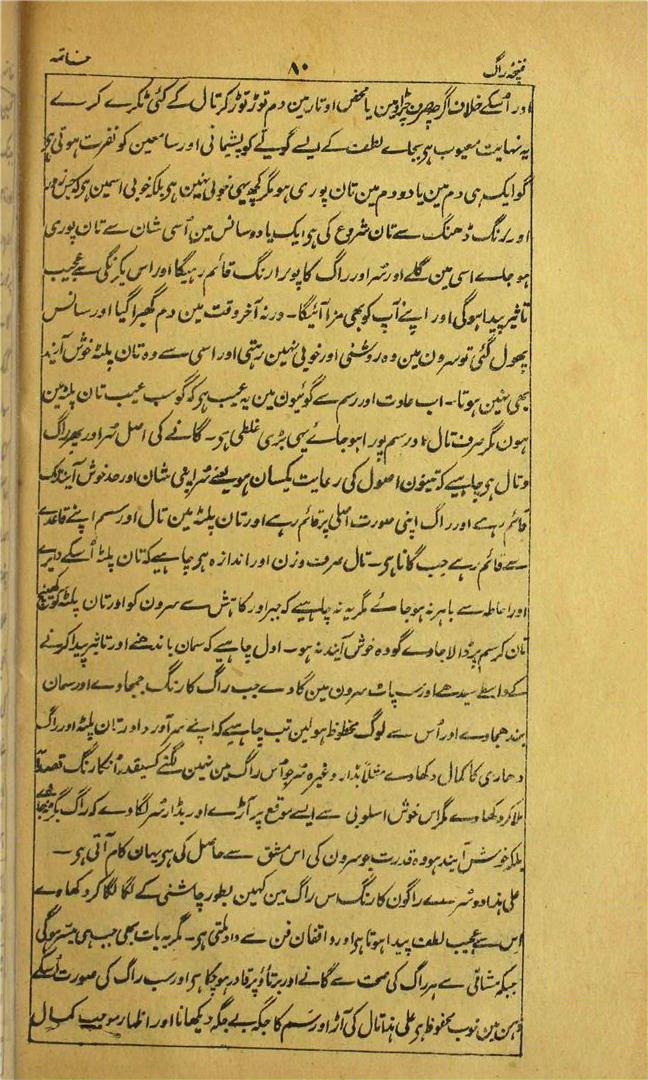 غنچۂ راگ ۸۰ خاتمہ
اور اُسکے خلاف اگر چڑاومین یا محض اوتارمین دم توڑ توڑ کر تال کے کئی ٹکرے کرے
یہ نہایت معیوب ہی بجاے لطف کے ایسے گویئے کو پشیمانی اور سامعین کو نفرت ہوتی ہی
گو ایک ہی دم مین یا دو دم مین تان پوری ہو مگر کچھ یہی خوبی نہین ہی بلکہ خوبی اسمین ہی کہ جس زور
اور رنگ ڈھنگ سے تان شروع کی ہی ایک یا دو سانس مین اُسی شان سے تان پوری
ہو جاے اسی مین گلے اور سُر اور راگ کا پورا رنگ قائم رہیگا اور اس یکرنگی سے عجیب
تاثیر پیدا ہوگی اور اپنے آپ کو بھی مزا آئیگا۔ ورنہ آخر وقت مین دم گھبرا گیا اور سانس
پھول گئی تو سرون مین وہ روشنی اور خوبی نہین رہتی اور اسی سے وہ تان پلٹہ خوش آیند
بھی نہین ہوتا۔ اب عادت اور رسم سے گویؤن مین یہ عیب ہی کہ گو سب عیب تان پلٹے مین
ہون مگر صرف تال اور سم پورا ہو جاے یہی بڑی غلطی ہی۔ گانے کی اصل سُر اور پھر راگ
و تال ہی چاہیے کہ تینون اصول کی رعایت یکسان ہو یعنے سُر اپنی شان اور حد خوش آیند تک
قائم رہے اور راگ اپنی صورت اصلی پر قائم رہے اور تان پلٹہ مین تال اور سم اپنے قاعدے
سے قائم رہے جب گانا ہی۔ تال صرف وزن اور اندازہ ہی چاہیے کہ تان پلٹا اُسکے دایرے
اور احاطہ سے باہر نہ ہو جائے مگر یہ نہ چاہیے کہ جبر اور کاہش سے سرون کو اور تان پلٹہ کو کھینچ
تان کر سم پر ڈالا جاوے گو وہ خوش آیند نہ ہو۔ اول چاہیے کہ سمان باندھنے اور تاثیر پیدا کرنے
کے واسطے سیدھے اور سپاٹ سرون مین گاوے جب راگ کا رنگ جمجاوے اور سمان
بندھجاوے اور اُس سے لوگ محظوظ ہو لین تب چاہیے کہ اپنے سر آورد اور تان پلٹہ اور راگ
دھاری کا کمال دکھاوے مثلاً بذار وغیرہ سُر جو اُس راگ مین نہین لگتے کسیقدر اُنکا رنگ قصداً
ملا کر دکھاوے مگر اس خوش اسلوبی سے ایسے موقع پر آڑے اور بذار سُر لگاوے کہ راگ بگڑ نجاے
بلکہ خوش آیند ہو وہ قدرت جو سرون کی اس مشق سے حاصل کی ہی یہان کام آتی ہی۔
علی ہذا دوسرے راگون کا رنگ اس راگ مین کہین بطور چاشنی کے لگا لگا کر دکھاوے
اس سے عجیب لطف پیدا ہوتا ہی اور واقفان فن سے داد ملتی ہی۔ مگر یہ بات بھی جبہی میسر ہوگی
جبکہ مشاقی سے ہر راگ کی صحت سے گانے اور برتاؤ پر قادر ہو چکا ہی اور سب راگ کی صورت اُسکے
ذہن مین خوب محفوظ ہی علی ہذا تال کی آڑ اور سم کا جگہ بے جگہ دیکھانا اور اظہار موجب کمال